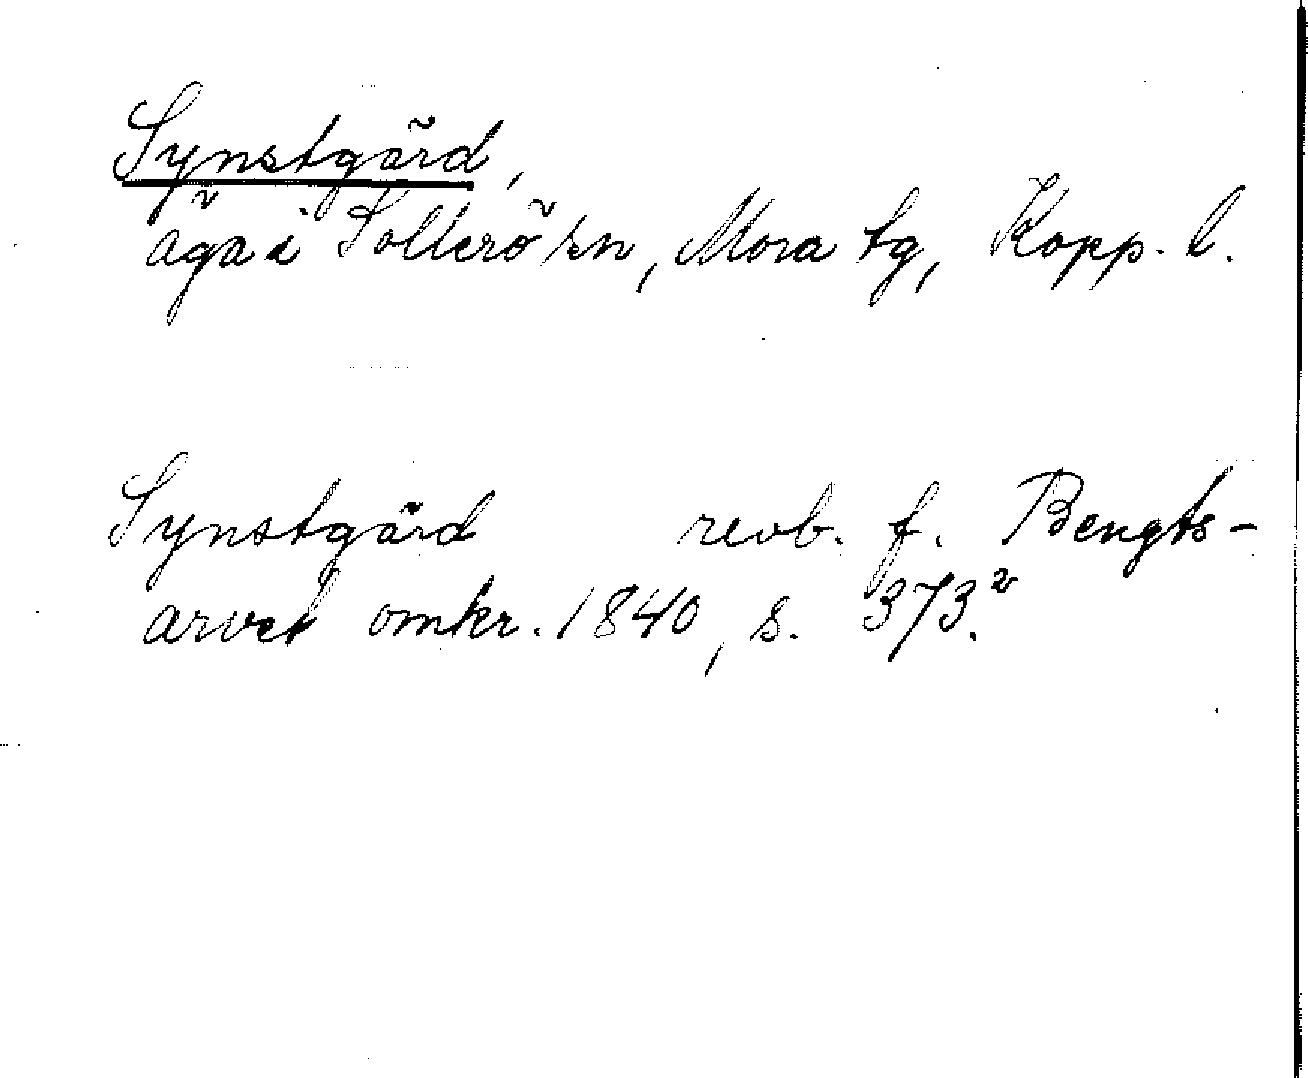 Synstgärd,
äga i Sollerö sn, Mora tg, Kopp. l.
Synstgärd revb. f. Bengts-
arvet omkr. 1840, s. 373.²